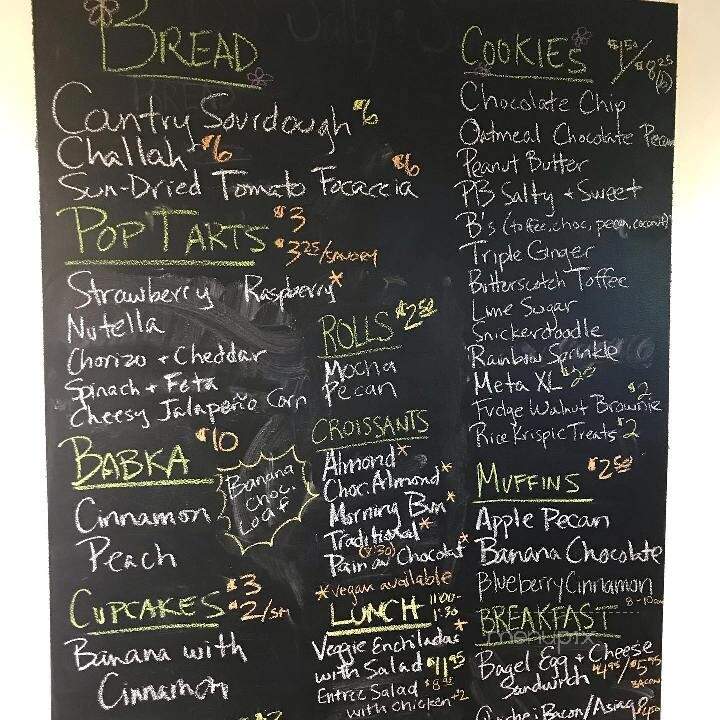 BREAD
Country Sourdough $6
Challah $6
Sun-Dried Tomato Focaccia $6
POP TARTS $3
$3.25/SAVORY
Strawberry Raspberry*
Nutella
Chorizo + Cheddar
Spinach + Feta
Cheesy Jalapeño Corn
BABKA $10
Cinnamon
Peach
Banana
Choc.
Loaf
CUPCAKES $3
$2/SM
Banana with
Cinnamon
ROLLS $2.50
Mocha
Pecan
CROISSANTS
Almond*
Choc. Almond*
Morning Bun*
Traditional*
(8:30)
Pain au Chocolat*
*vegan available
LUNCH 11:00-
1:30
Veggie Enchiladas*
with Salad $11.95
Entree Salad $8.95
with chicken +2
COOKIES $1.50/
$8.25
Chocolate Chip
Oatmeal Chocolate Pecan
Peanut Butter
PB Salty + Sweet
B's (toffee, choc, pecan, coconut)
Triple Ginger
Butterscotch Toffee
Lime Sugar
Snickerdoodle
Rainbow Sprinkle
Meta XL
Fudge Walnut Brownie $2
Rice Krispie Treats $2
MUFFINS $2.50
Apple Pecan
Banana Chocolate
Blueberry Cinnamon
8-10am
BREAKFAST
menupix
Bagel Egg + Cheese
Sandwich $4.95/$5.95
BACON
Bacon/Asiago